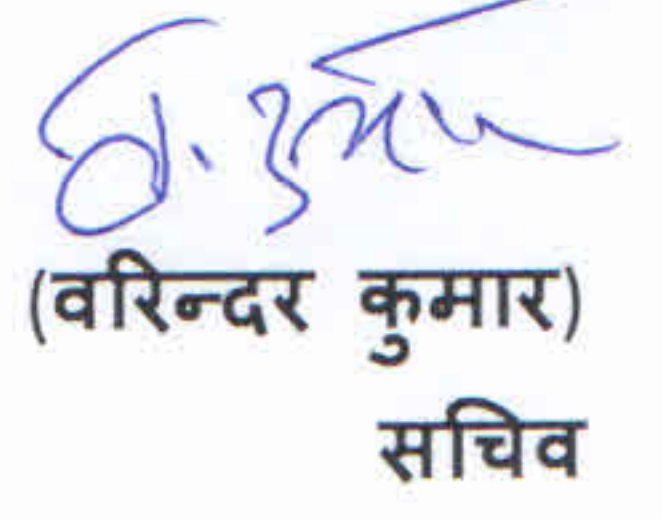 (वरिन्दर कुमार)
सचिव